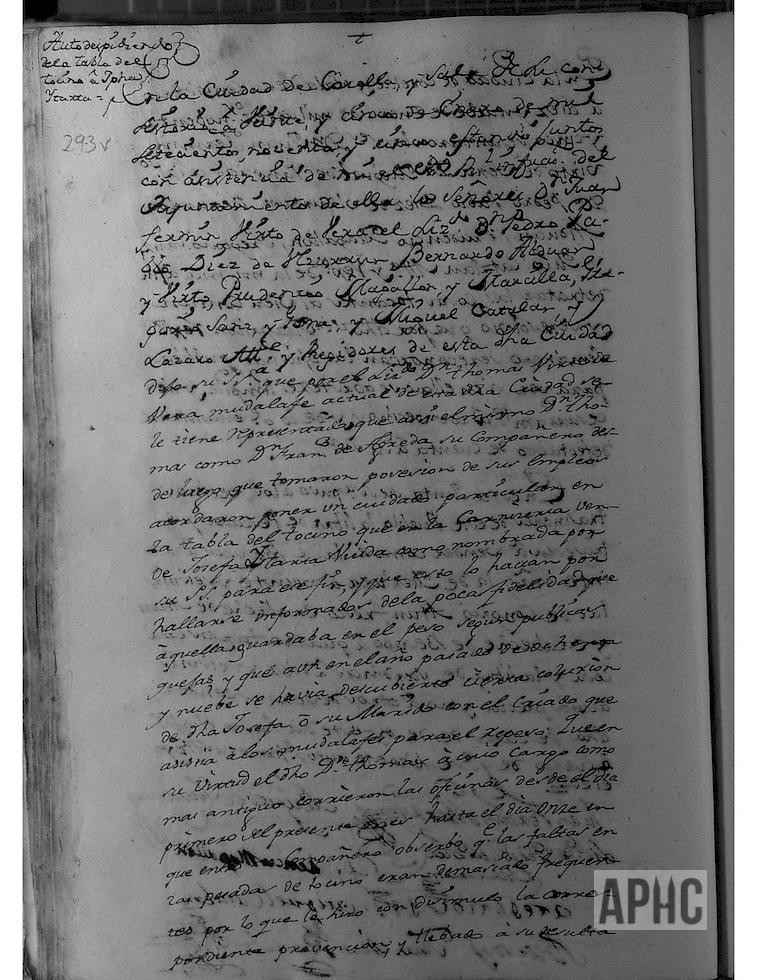 Auto despidiendo
de la tabla del
tocino â Jpha
Ytarta =
293v
En la Ciudad de Corella, y Sala
Veinte, y cinco de Enero de mil
Setecientos, noventa y cinco, estando juntos
con asistencia de mi el del
Ayuntamiento de ella los Señores Dn. Juan
fermin Virto de Vera el Lizdo. Dn. Pedro
Diez de Bernardo Alduan
y Virto, Prudencio Magallon, y Marcilla,
Sanz, y y Miguel Catalan, y
Lazaro y Regidores de esta dha Ciudad
dijo su Sª. que por el Lizdo. Dn. Thomas Virto de
Vera mudalafe actual de esta dha Ciudad se
le tiene representado, que asi el mismo Dn. Tho-
mas como Dn. Franco. de Agreda su Compañero des-
de luego que tomaron povesion de sus Empleos
acordaron poner un cuidado particular en
la tabla del tocino que en la Carniceria ven-
de Josefa Ytarta Viuda como nombrada por
su Sª. para ese fin, y que esto lo hacian por
hallarse informados de la poca fidelidad que
àquella guardaba en el peso segun publicas
quejas y que aun en el año pasado de ochenta
y nuebe se havia descubierto cierta colusion
de dha Josefa ò su Marido con el Criado que
àsistia à los mudalafes para el repeso: Que en
su virtud el dho Dn. Thomas à cuio cargo como
mas antiguo, corrieron las oficinas desde el dia
primero del presente mes hasta el dia Onze en
que entró Compañero observò qe. las faltas en
las pesadas de tocino eran demasiado frequen-
tes por lo que le hizo con disimulo la corres-
pondiente prevencion, y llebado à su desulta
APHC